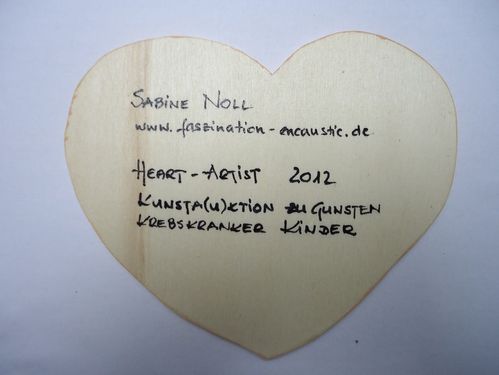 Sabine Noll
www.faszination-encaustic.de
Heart-Artist 2012
Kunsta(u)ktion zu Gunsten
Krebskranker Kinder